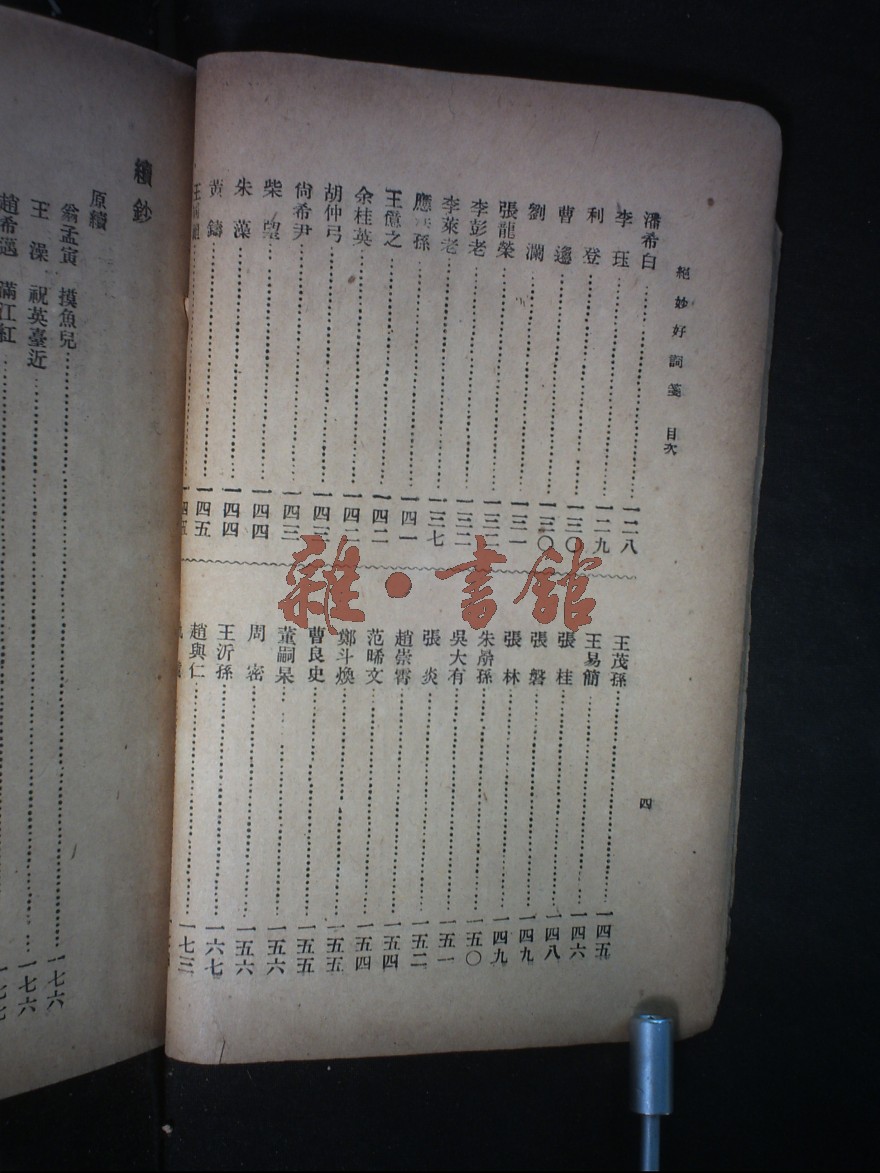 絕妙好詞箋 目次
潘希白 一二八
李珏 一二九
利登 一三〇
曹邍 一三〇
劉瀾 一三一
張龍榮 一三二
李彭老 一三二
李萊老 一三七
應孫 一四一
王億之 一四二
余桂英 一四二
胡仲弓 一四三
尙希尹 一四三
柴望 一四四
朱藻 一四四
黃鑄 一四五
王 一四五
王茂孫 一四五
王易簡 一四六
張桂 一四八
張磐 一四九
張林 一四九
朱孱孫 一五〇
吳大有 一五一
張炎 一五二
趙崇霄 一五四
范晞文 一五四
鄭斗煥 一五五
曹良史 一五五
董嗣杲 一五六
周密 一五六
王沂孫 一六七
趙與仁 一七三
四
雜·書館
續鈔
原續
翁孟寅 摸魚兒 一七六
王澡 祝英臺近 一七六
趙希邁 滿江紅 一七七